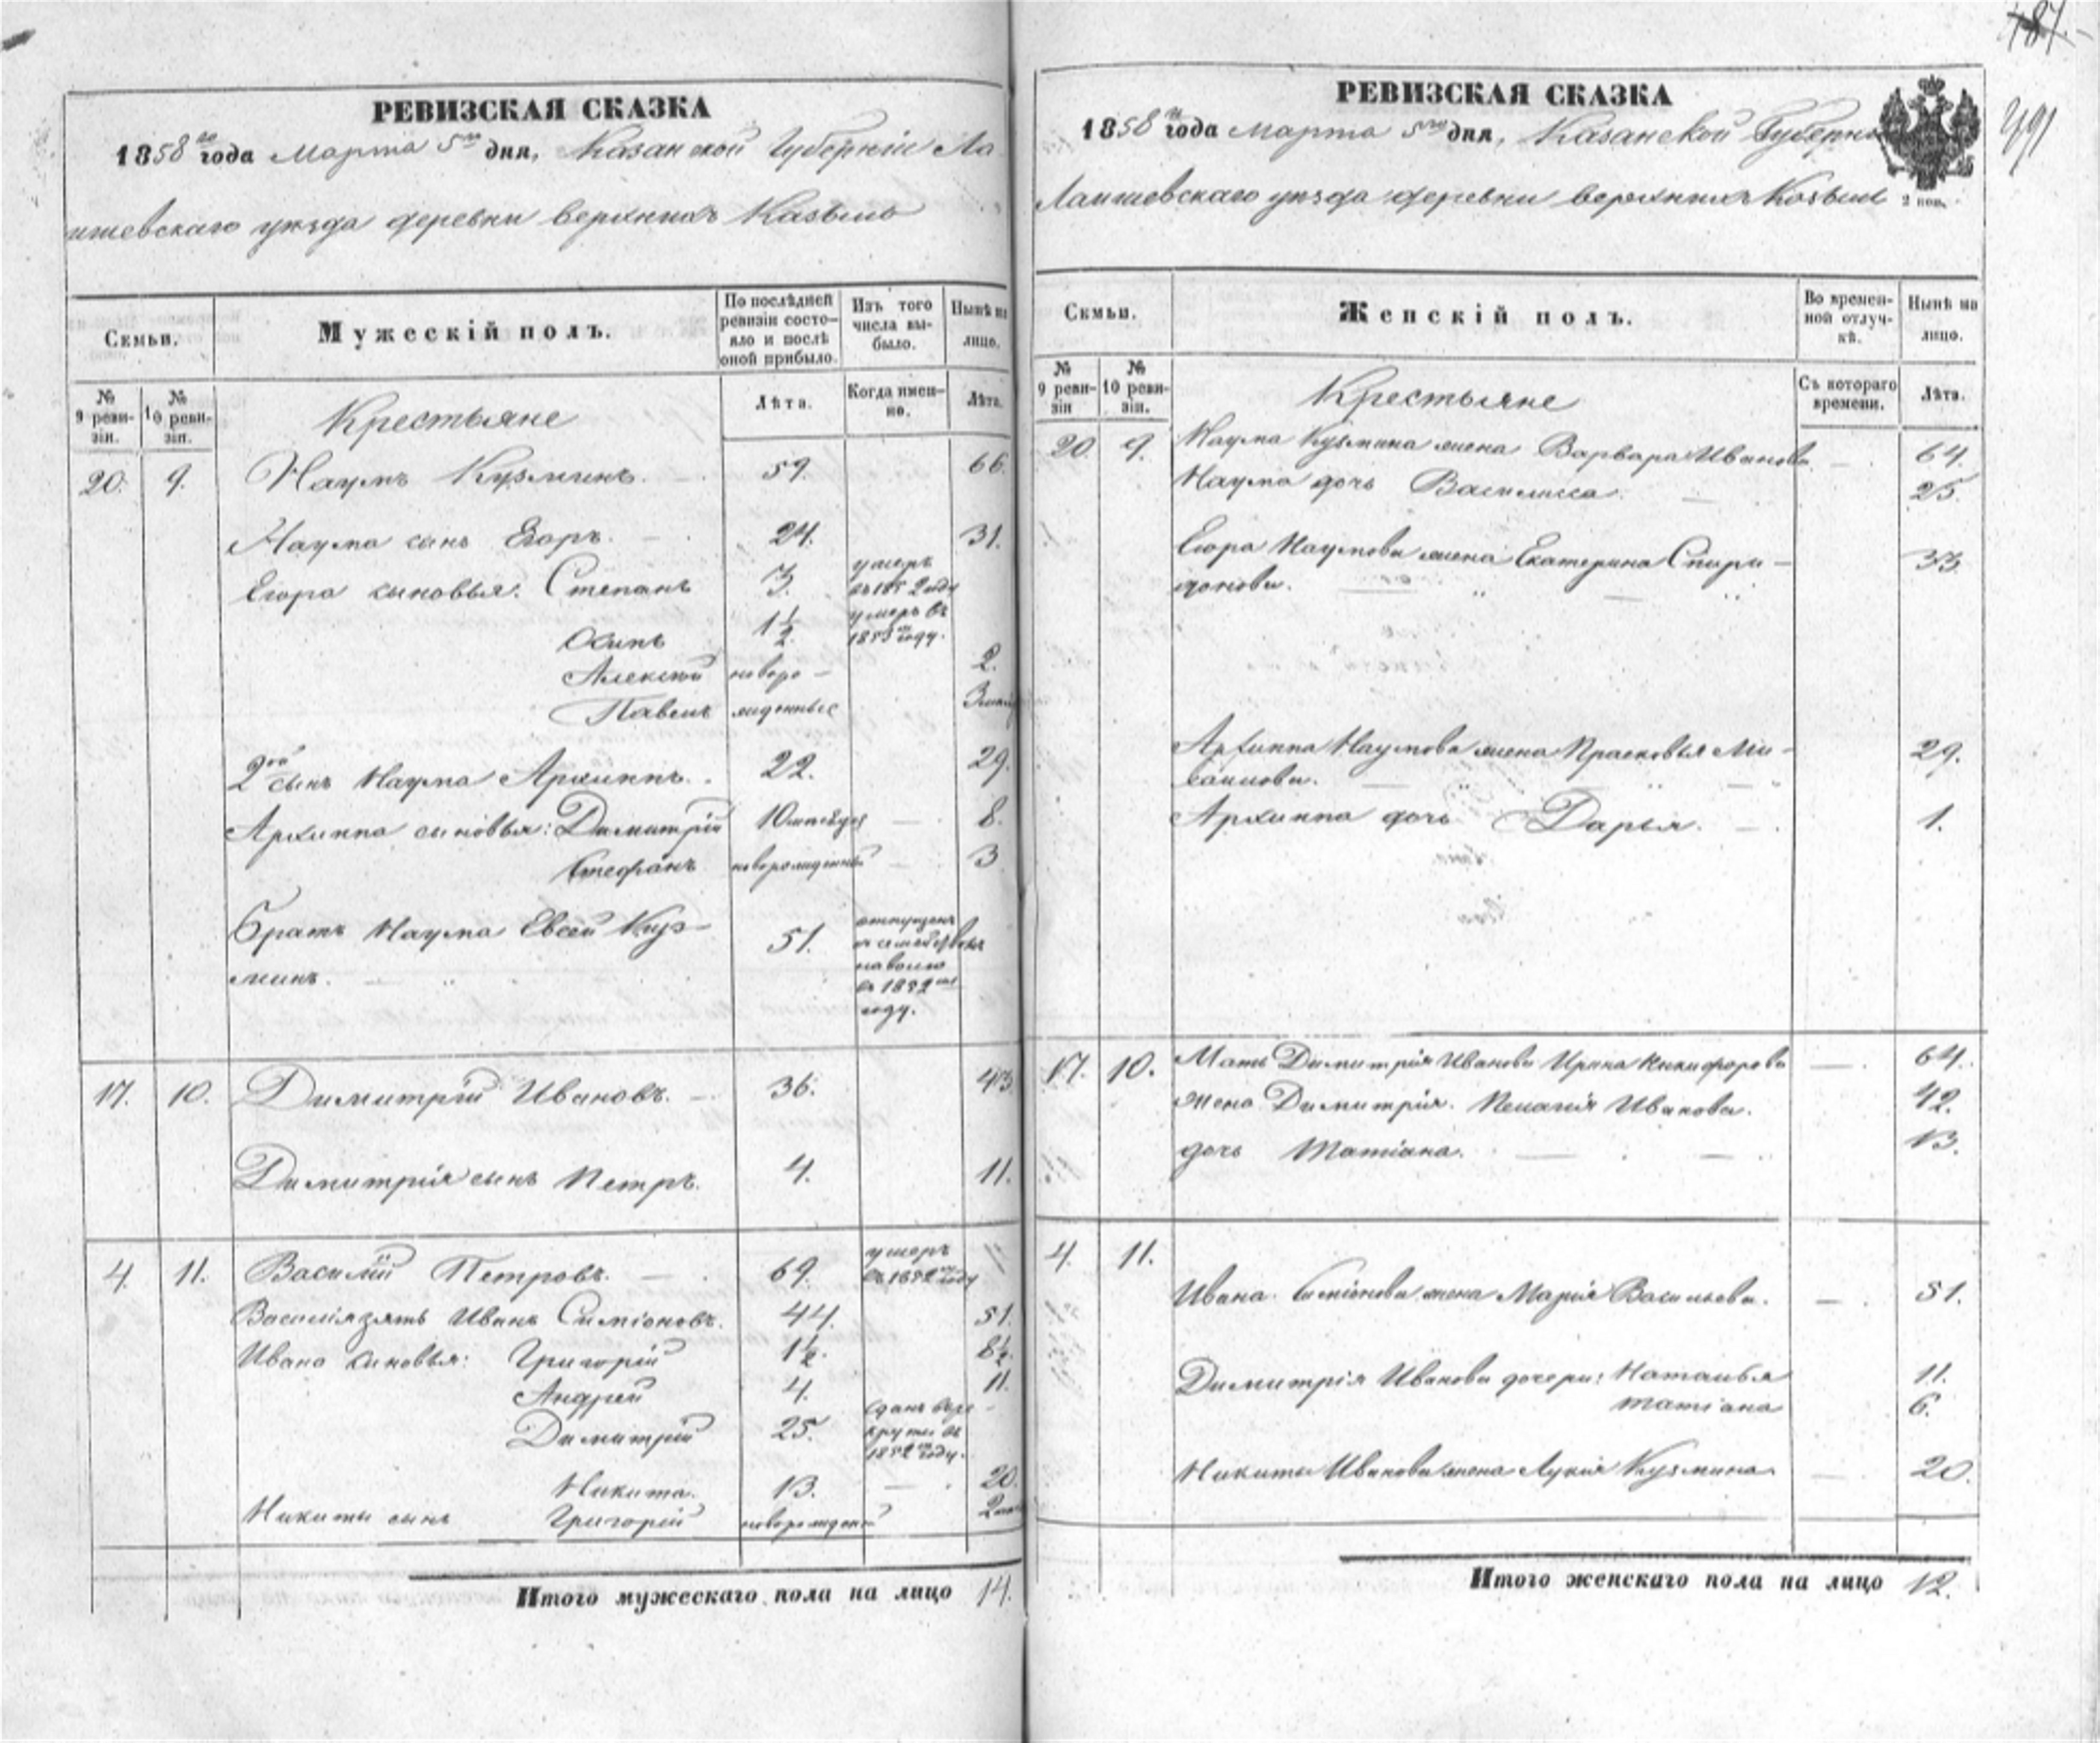 487.
491
РЕВИЗСКАЯ СКАЗКА
1858го года Марта 5го дня, Казанской Губернiи Ла
ишевскаго уѣзда деревни верхнихъ Казыль
Семьи.
Мужескiй полъ.
По послѣдней ревизiи состояло и послѣ оной прибыло.
Изъ того числа выбыло.
Нынѣ на лицо.
№ 9 ревизiи.
№ 10 ревизiи.
Крестьяне
Лѣта.
Когда именно.
Лѣта.
20. 9. Наумъ Кузминъ. 59. 66.
Наума сынъ Егоръ. 24. 31.
Егора сыновья: Степанъ 3. умеръ въ 1852 году
Осипъ 1½. умеръ въ 1853 году.
Алексѣй новоро- 2.
Павелъ жденные 3
2ой сынъ Наума Архиппъ. 22. 29.
Архиппа сыновья: Димитрiй 10 8.
Стефанъ новорожденный 3
Братъ Наума Евсей Куз-
минъ. 51. отпущенъ на волю въ 1852 году.
17. 10. Димитрiй Ивановъ. 36. 43
Димитрiя сынъ Петръ. 4. 11.
4. 11. Василiй Петровъ. 69. умеръ въ 1852 году "
Василiя зять Иванъ Симiоновъ. 44. 51.
Ивана сыновья: Григорiй 1½. 8½.
Андрей 4. 11.
Димитрiй 25. сданъ въ рекруты въ 1852 году.
Никита. 13. 20.
Никиты сынъ Григорiй новорожден 2
Итого мужескаго пола на лицо 14.
РЕВИЗСКАЯ СКАЗКА
1858го года марта 5го дня, Казанской Губернiи
Лаишевскаго уѣзда деревни верхнихъ Казыль
2 коп.
Семьи.
Женскiй полъ.
Во временной отлучкѣ.
Нынѣ на лицо.
№ 9 ревизiи
№ 10 ревизiи.
Крестьяне
Съ котораго времени.
Лѣта.
20. 9. Наума Кузмина жена Варвара Иванова 64.
Наума дочь Василисса. 25.
Егора Наумова жена Екатерина Спири-
донова. 33.
Архиппа Наумова жена Прасковья Ми-
хаилова. 29.
Архиппа дочь Дарья. 1.
17. 10. Мать Димитрiя Иванова Ирина Никифорова 64.
Жена Димитрiя. Пелагiя Иванова. 42.
дочь Татiана. 13.
4. 11.
Ивана Симiонова жена Марiя Васильева. 51.
Димитрiя Иванова дочери: Наталья 11.
Татiана 6.
Никиты Иванова жена Лукiя Кузмина 20.
Итого женскаго пола на лицо 12.